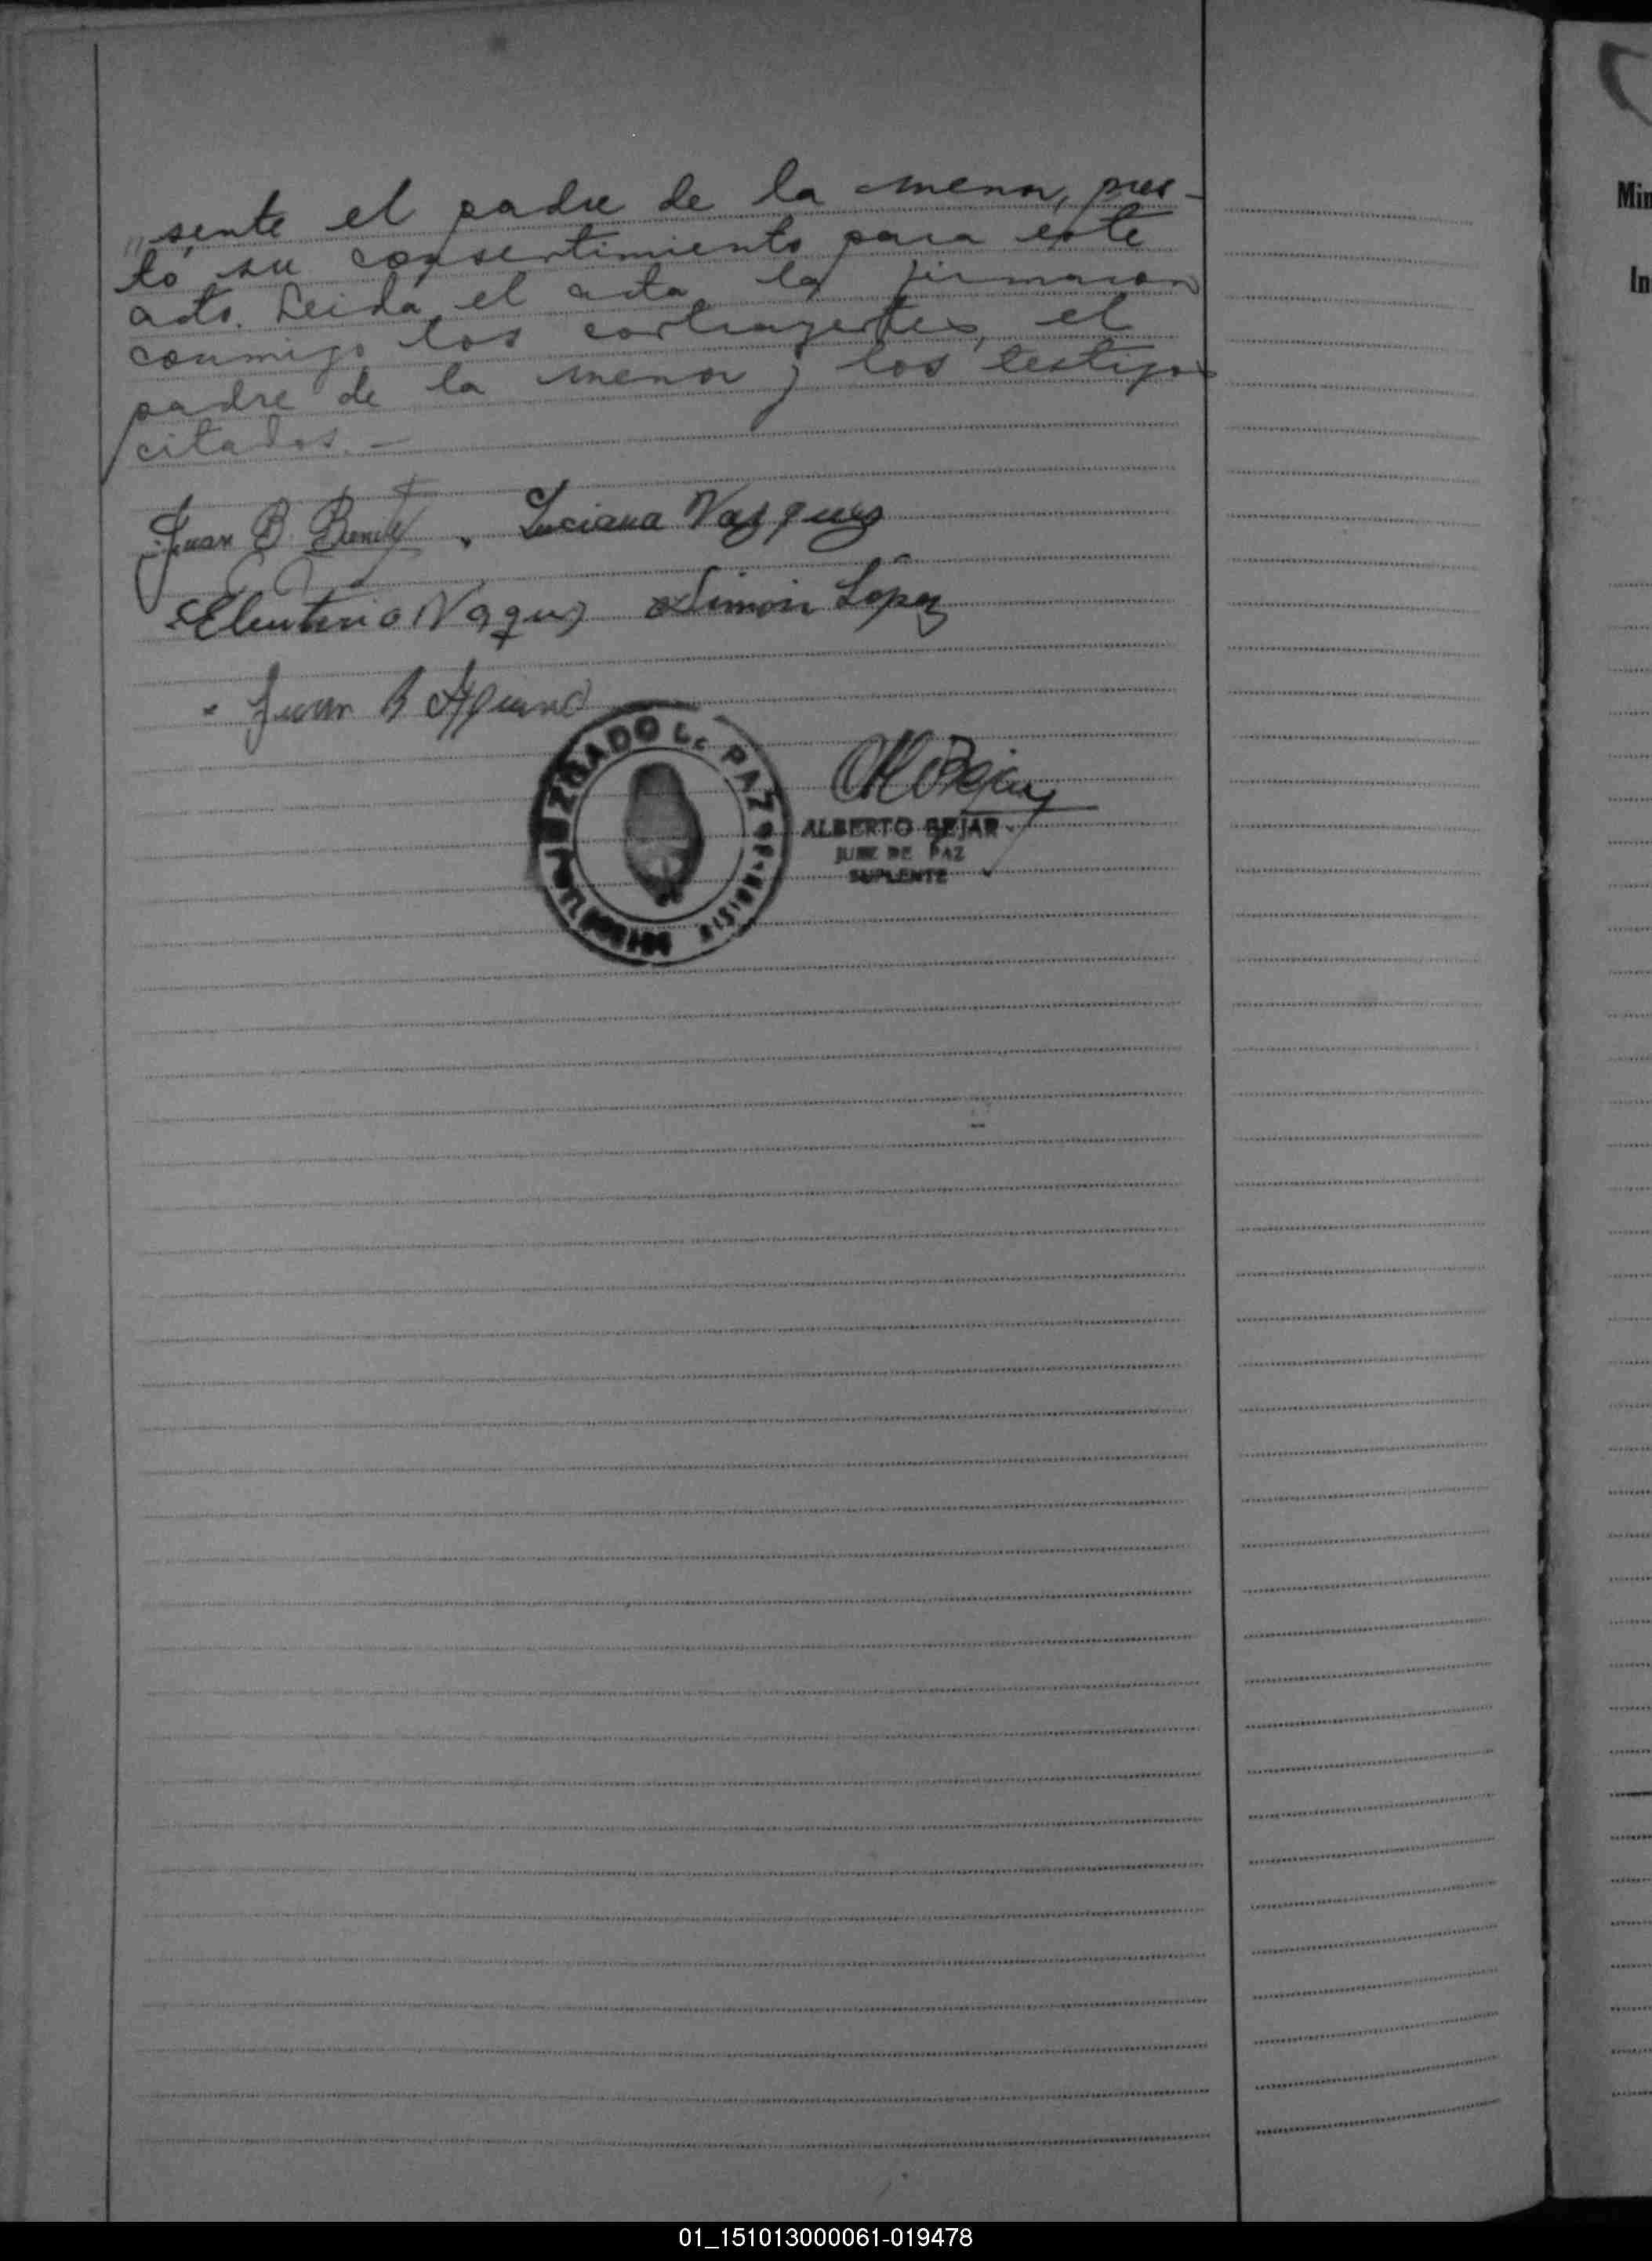 „sente el padre de la menor, pres-
tó su consentimiento para este
acto. Leida el acta la firmaron
conmigo los contrayentes, el
padre de la menor y los testigos
citados.-
Juan B. Luciana Vazquez
Eleuterio Vazquez Simón López
Juan B
JUZGADO de PAZ
ALBERTO BEJAR
JUEZ DE PAZ
SUPLENTE
Min
In
01_151013000061-019478